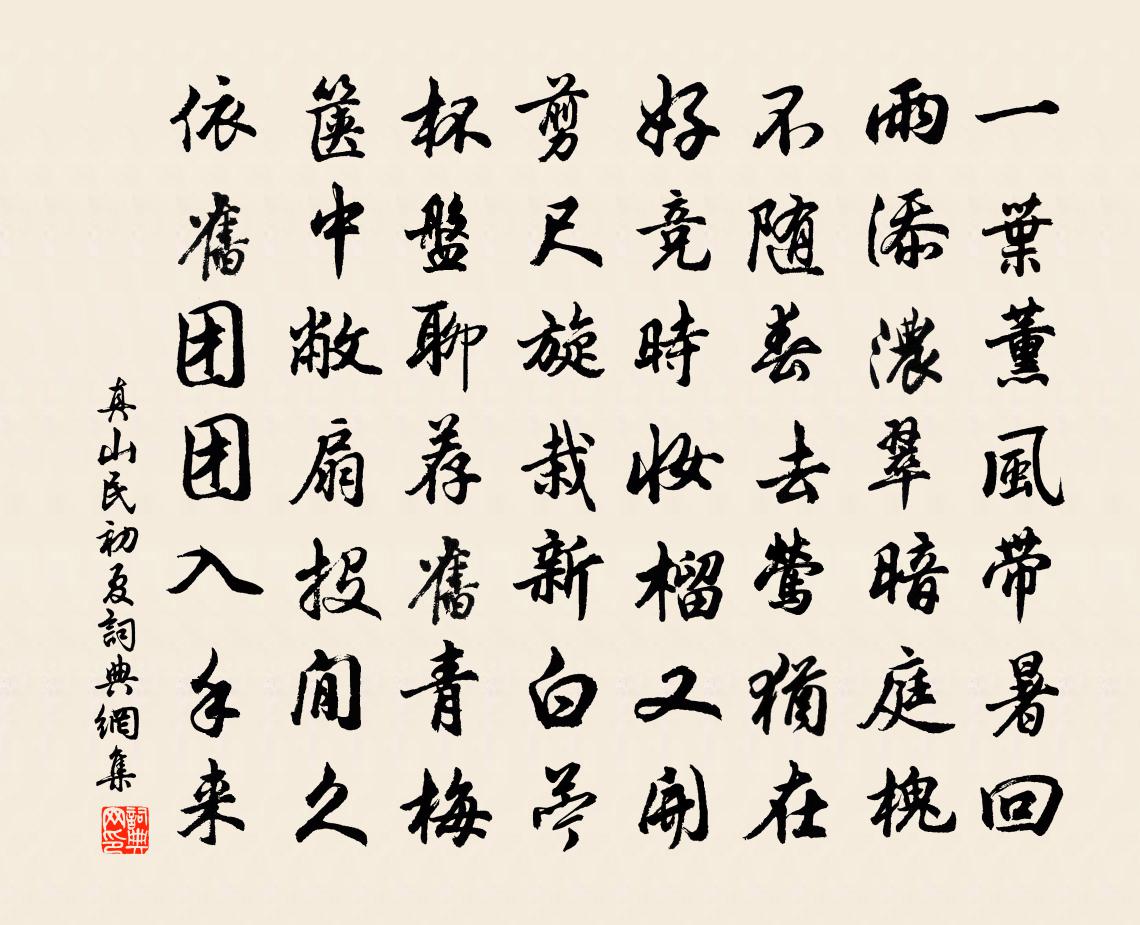 一葉薰風带暑回
雨添濃翠暗庭槐
不随春去鶯猶在
好竞時妆榴又開
剪尺旋裁新白苎
杯盤聊荐舊青梅
篋中敝扇投閒久
依舊团团入手来
真山民初夏詞典網集
詞典网印